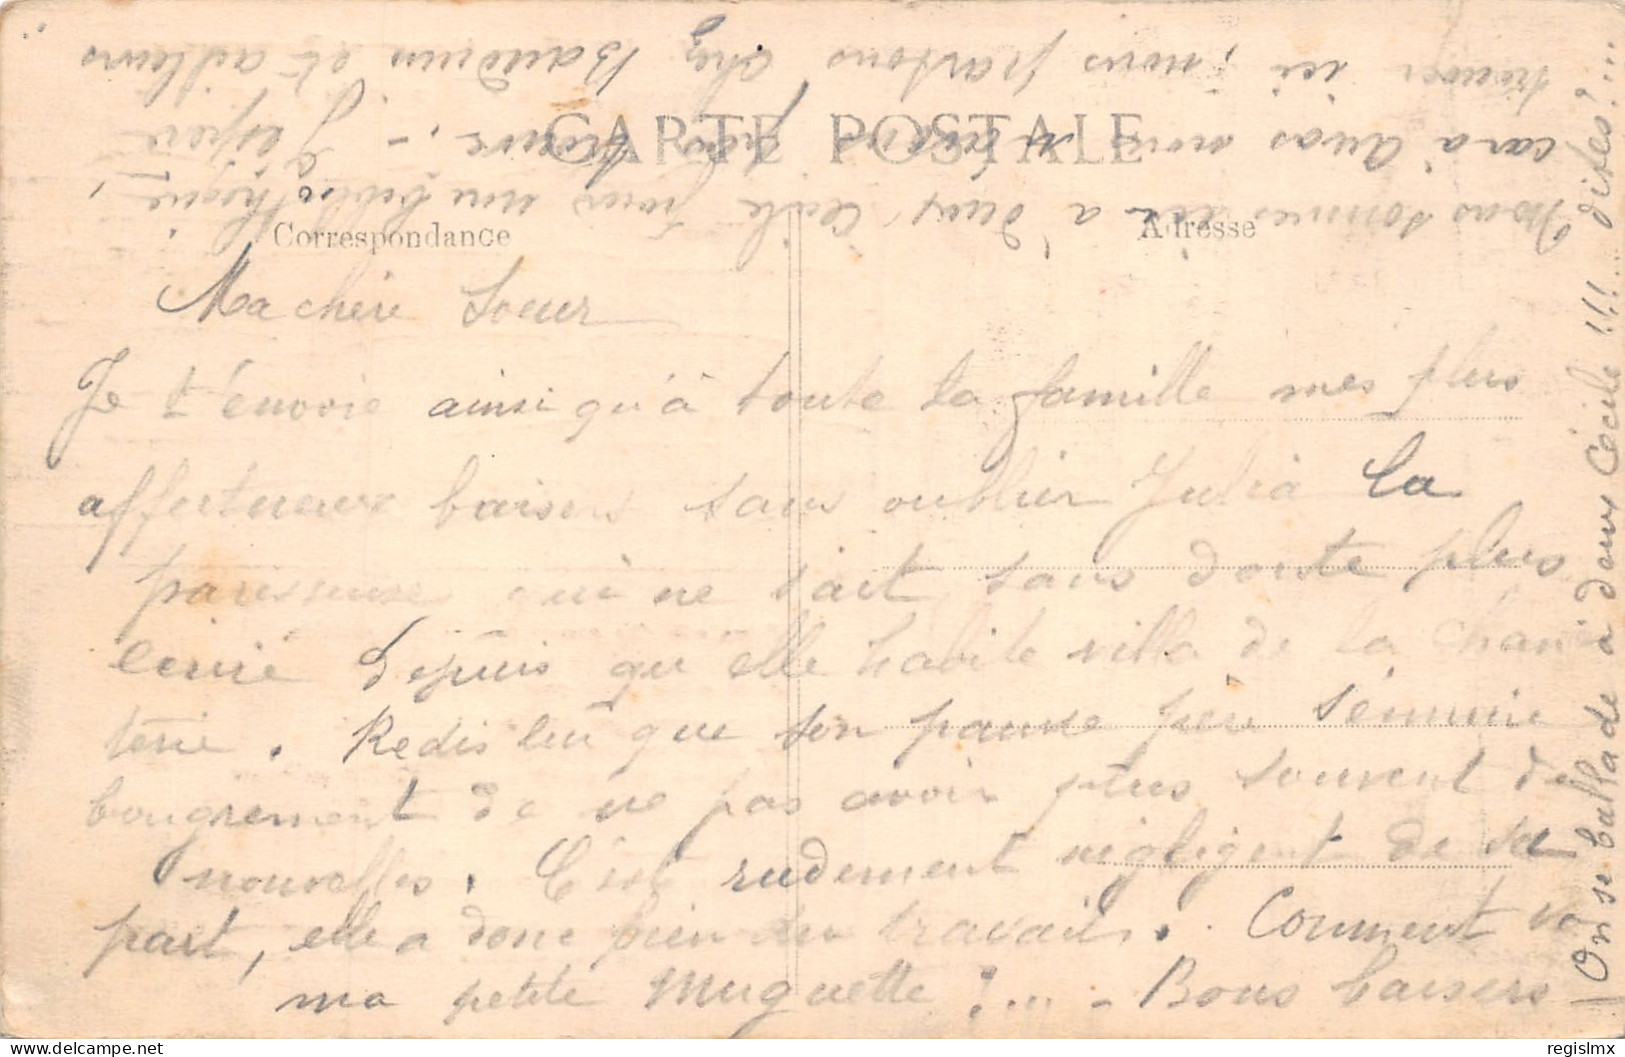 CARTE POSTALE
Correspondance
Adresse
Ma chère Soeur
Je t'envoie ainsi qu'à toute la famille mes plus
affectueux baisers sans oublier Julia la
paresseuse qui ne sait sans doute plus
écrire depuis que elle habite villa de la Chan
terie. Redis lui que son pauvre père s'ennuie
bougrement de ne pas avoir plus souvent de
nouvelles. C'est rudement négligent de sa
part, elle a donc bien du travail. Comment va
ma petite Muguette ?... - Bons baisers
Nous sommes ici à deux Cécile pour un bibliothèque,
car à deux nous - J'espère
trouver ici, nous partons chez Baudrin et ailleurs
On se ballade à deux Cécile !!! dites?...
regislmx